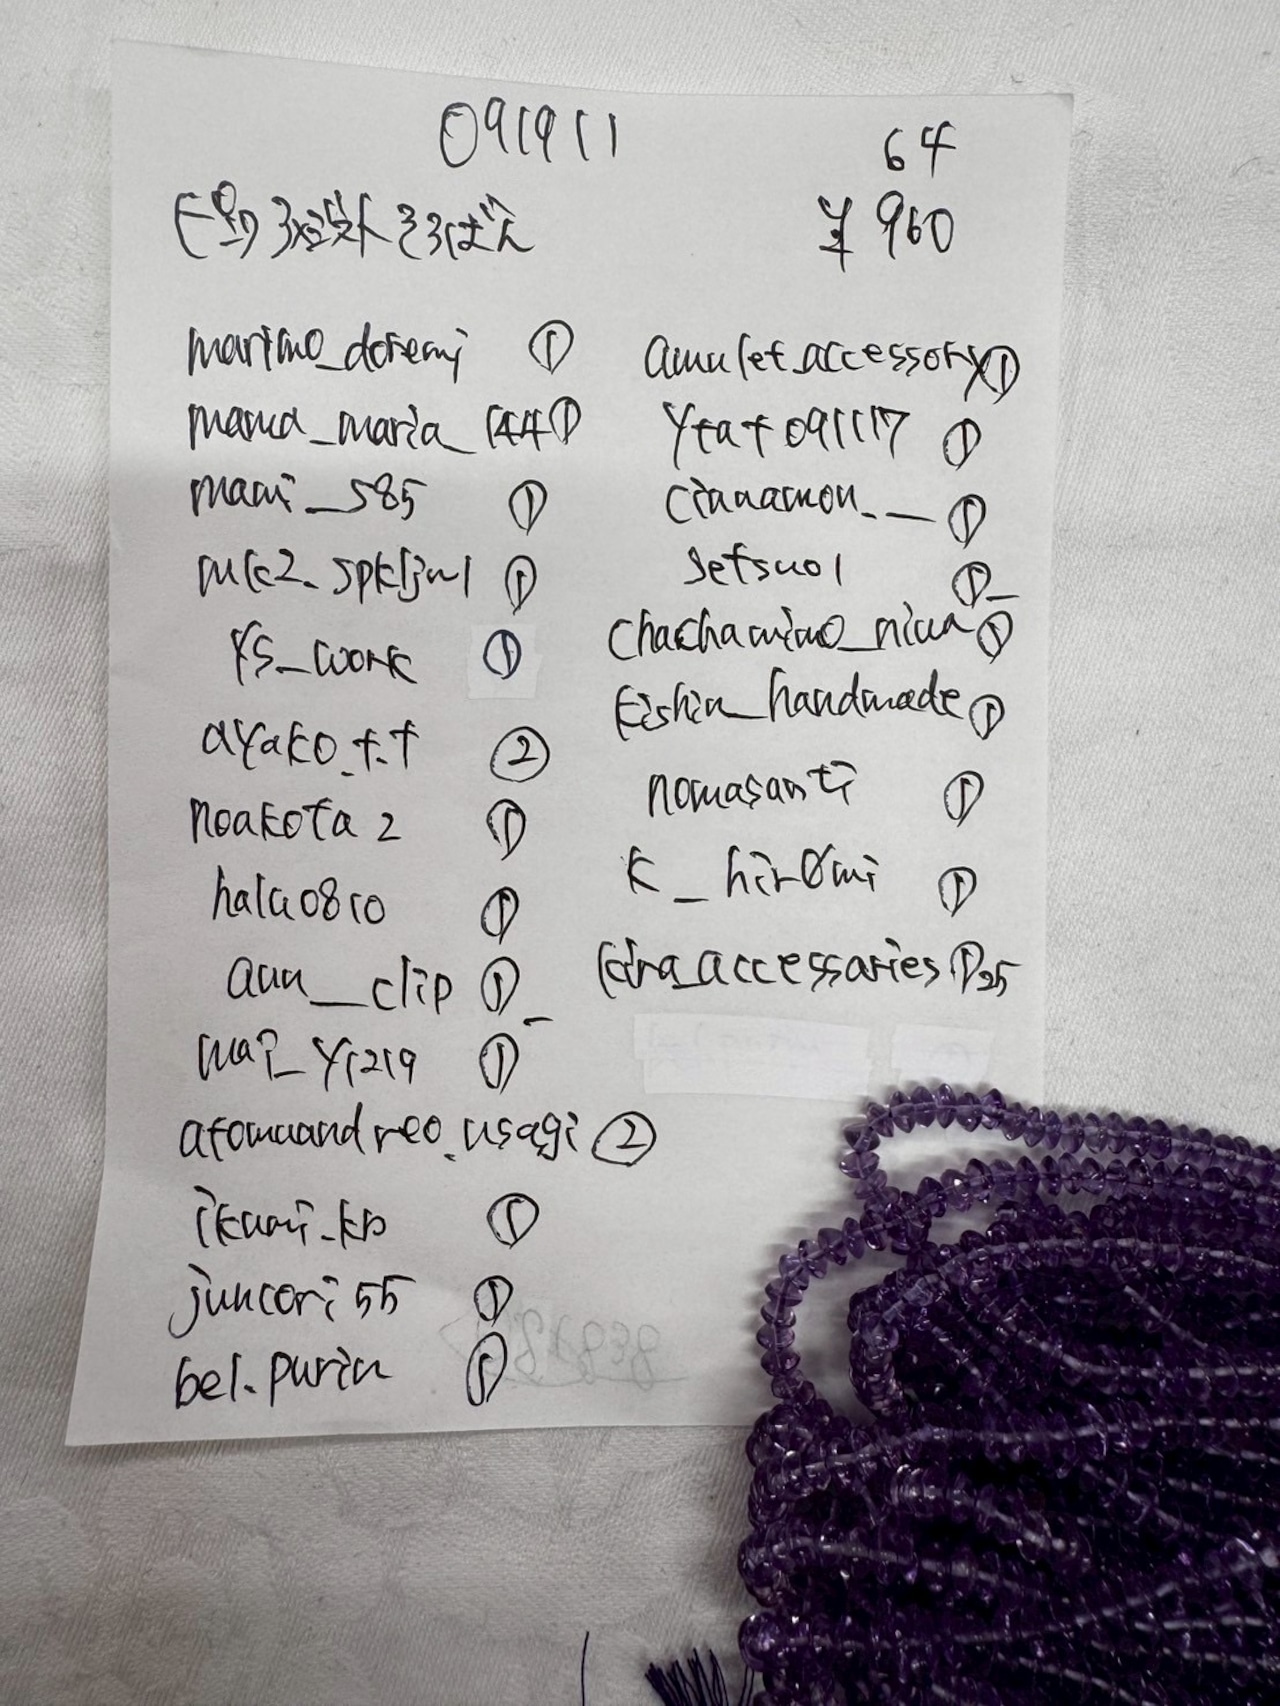 091911
64
¥960
そろばん
marimo_doremi ①
mama_maria_144①
mami_585 ①
mk2.spkljm1 ①
ys_work ①
ayako.t.t ②
noakota2 ①
halu0810 ①
aun__clip ①
mai_y1219 ①
atomuandreo.usagi ②
ikumi_kp ①
juncori55 ①
bel.purin ①
amulet_accessory①
ytat091117 ①
cinnamon.__ ①
setsuo1 ①
chachamimo_nina①
kishin_handmade①
nomasanti ①
k_hir0mi ①
kira_accessaries①25